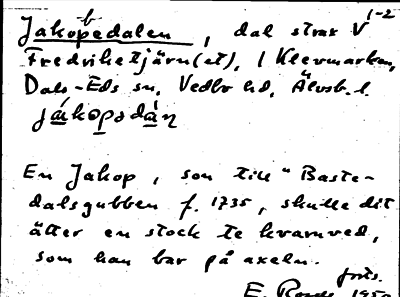 1-2
b
Jakopedalen, dal strax V
Fredriketjärn(et), i Klevmarken,
Dals-Eds sn, Vedbo hd, Älvsb. l.
jákopədàṇ
En Jakop, son till "Baste-
dalsgubben f. 1735, skulle dit
åtter en stock te kvarnved,
som han bar på axeln.
forts.
E. 1950